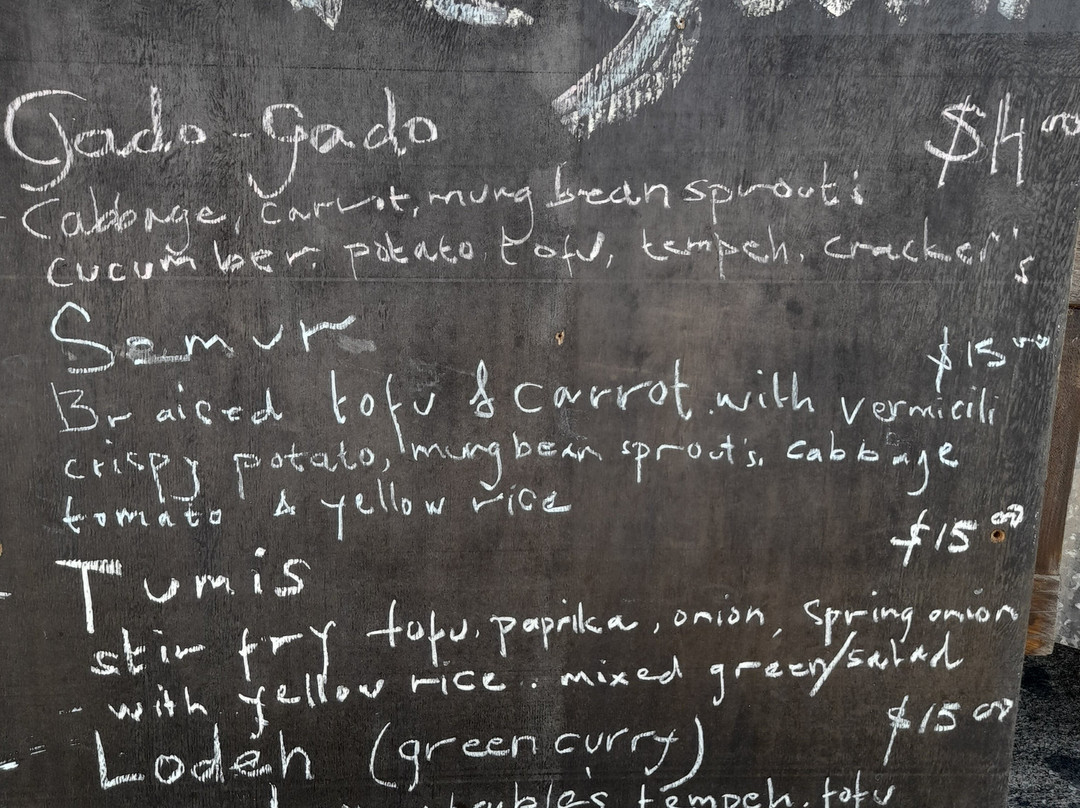 Gado-gado $14.00
Cabbage, carrot, mung bean sprouts
cucumber, potato, tofu, tempeh, crackers
Semur $15.00
Braised tofu & carrot with vermicili
crispy potato, mung bean sprouts, cabbage
tomato & yellow rice
Tumis $15.00
stir fry tofu, paprika, onion, spring onion
with yellow rice. mixed green/salad
Lodeh (green curry) $15.00
tempeh, tofu